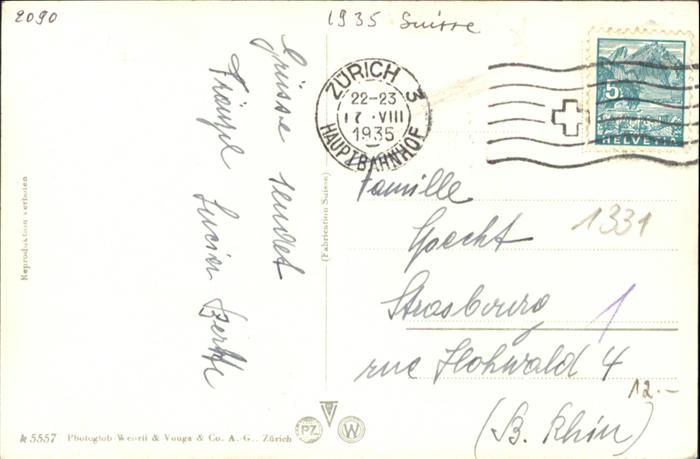 2090
1935 Suisse
ZÜRICH 3
22-23
17. VIII
1935
HAUPTBAHNHOF
5
HELVETIA
Grüsse sendet
Lucien Berthe
Famille
Goecht
Strasbourg
rue Hohwald 4
(B. Rhin)
1331
1
12.-
Reproduktion verboten
(Fabrication Suisse)
k 5557 Photoglob-Wehrli & Vouga & Co. A.-G., Zürich
PZ
W